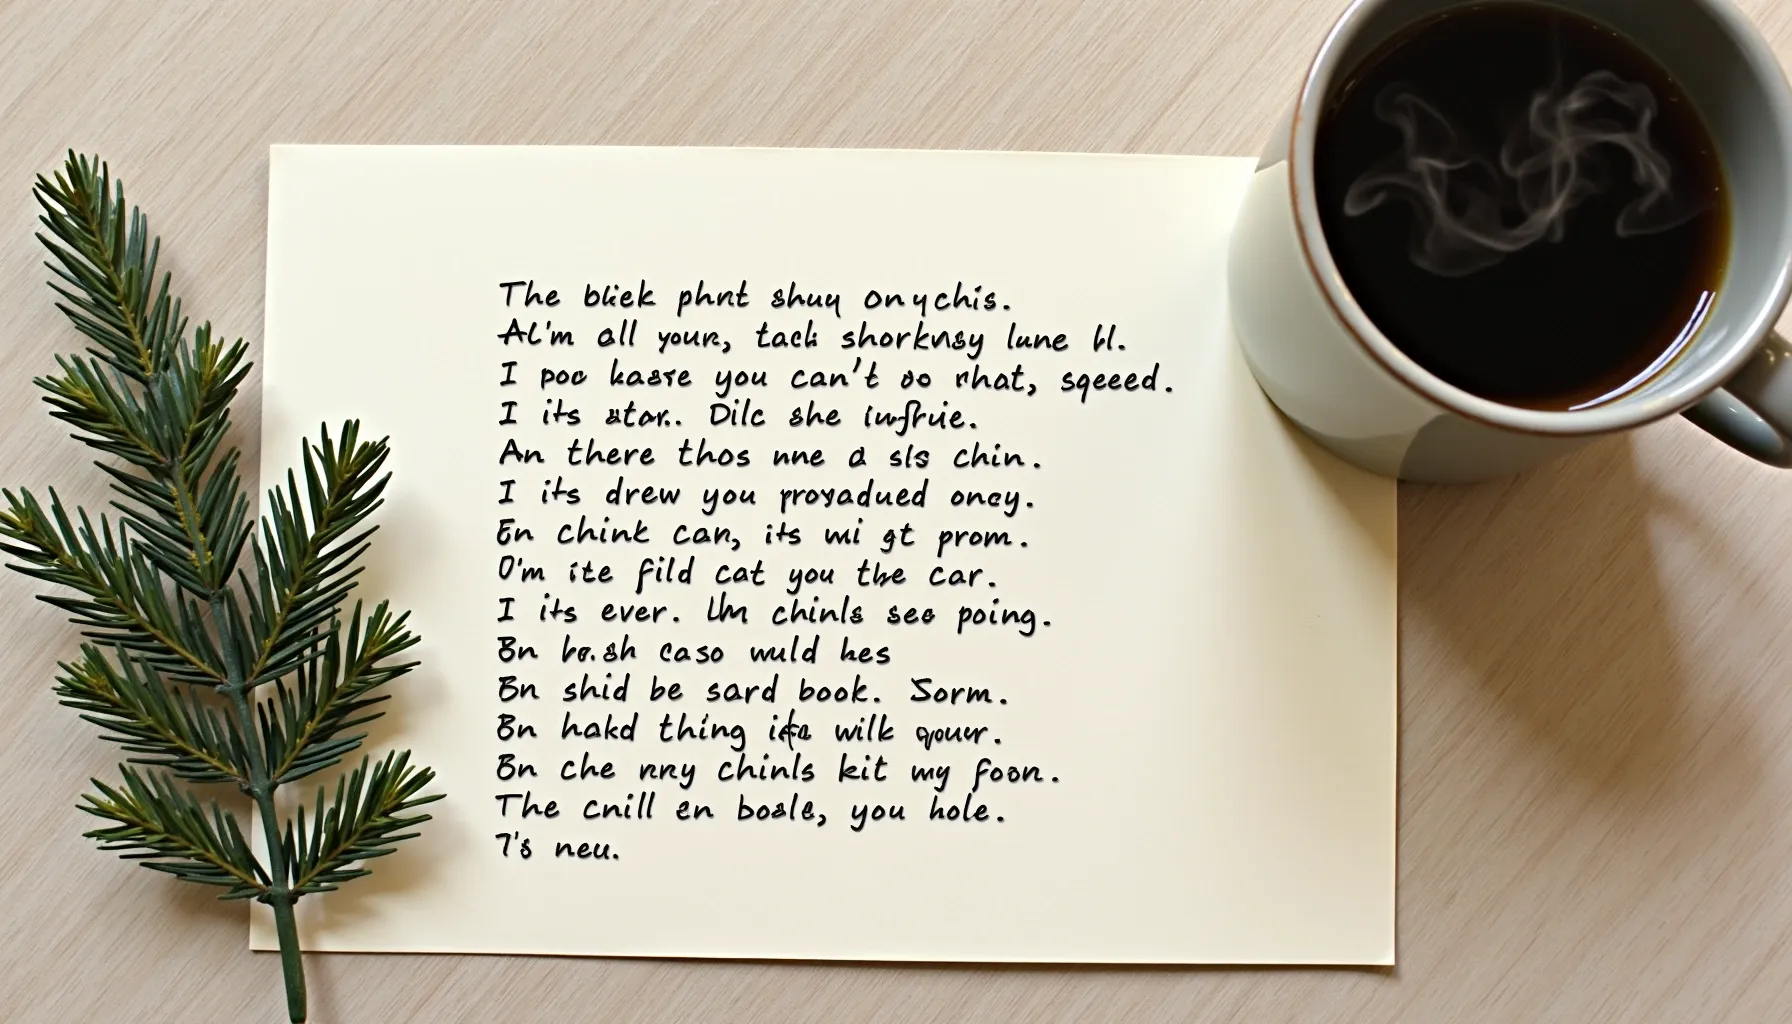 The bliek phnt shuy onychis.
AL'm all your, tack shorknsy lune bl.
I poo kasre you can't oo rhat, sqeeed.
I its ator.. Dilc she
An there thos nne a sls chin.
I its drew you proyadued oncy.
En chink can, its wi gt prom.
O'm ite fild cat you the car.
I its ever. Um chinls see poing.
Bn caso wuld hes
Bn shid be sard book. Sorm.
Bn hakd thing wilk
Bn che rry chinls kit my foon.
The cnill en bosle, you hole.
7's neu.